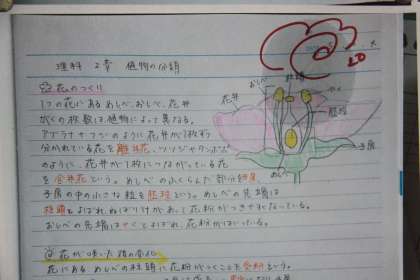 理科 2章 植物の分類
花のつくり
1つの花にあるめしべ、おしべ、花弁
がくの枚数は、植物によって異なる。
アブラナやエンドウのように花弁が1枚ずつ
分かれている花を離弁花、ツツジやタンポポ
のように、花弁が1枚につながっている花
を合弁花という。めしべのふくらんだ部分を子房
子房の中の小さな粒を胚珠という。めしべの先端は
柱頭とよばれ、ねばりけがあって花粉がつきやすくなっている。
おしべの先端はやくとよばれ、花粉がはいっている。
花が咲いた後の変化
花にあるめしべの柱頭に花粉がつくことを受粉という。
おしべ
柱頭
やく
花弁
胚珠
子房
めしべ